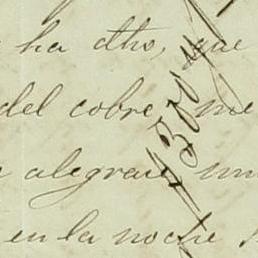 ha dho, que
del cobre, me
alegrare
en la noche